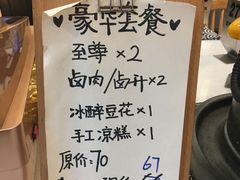 ♥豪华套餐♥
至尊×2
卤肉/卤汁×2
冰醉豆花×1
手工凉糕×1
原价:70
67